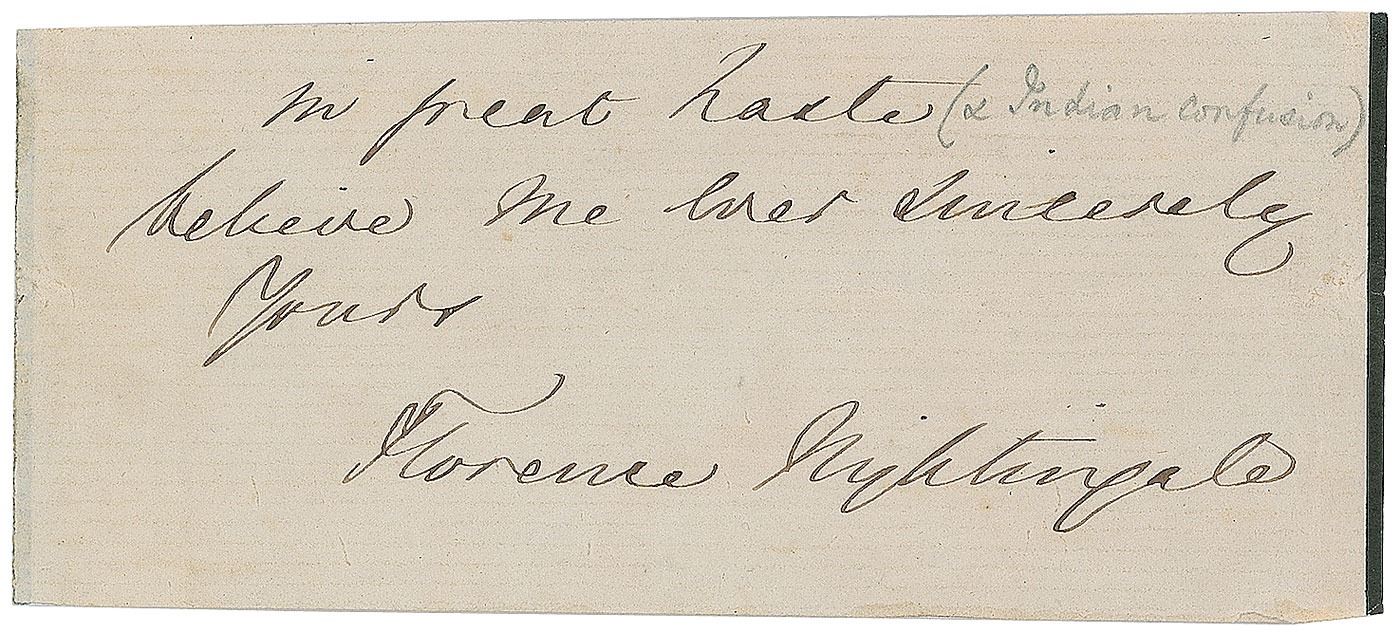 in great haste (& Indian confusion)
believe me ever sincerely
Yours
Florence Nightingale